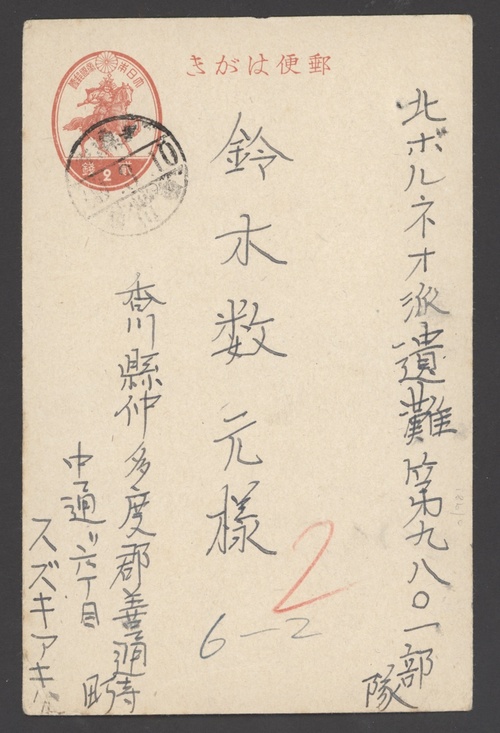 郵便はがき
大日本帝國郵便
2
銭
10
北ボルネオ派遣難第九八〇一部
隊
鈴木数元様
香川縣仲多度郡善通寺
町
中通リ六丁目
スズキアキ
2
6-2